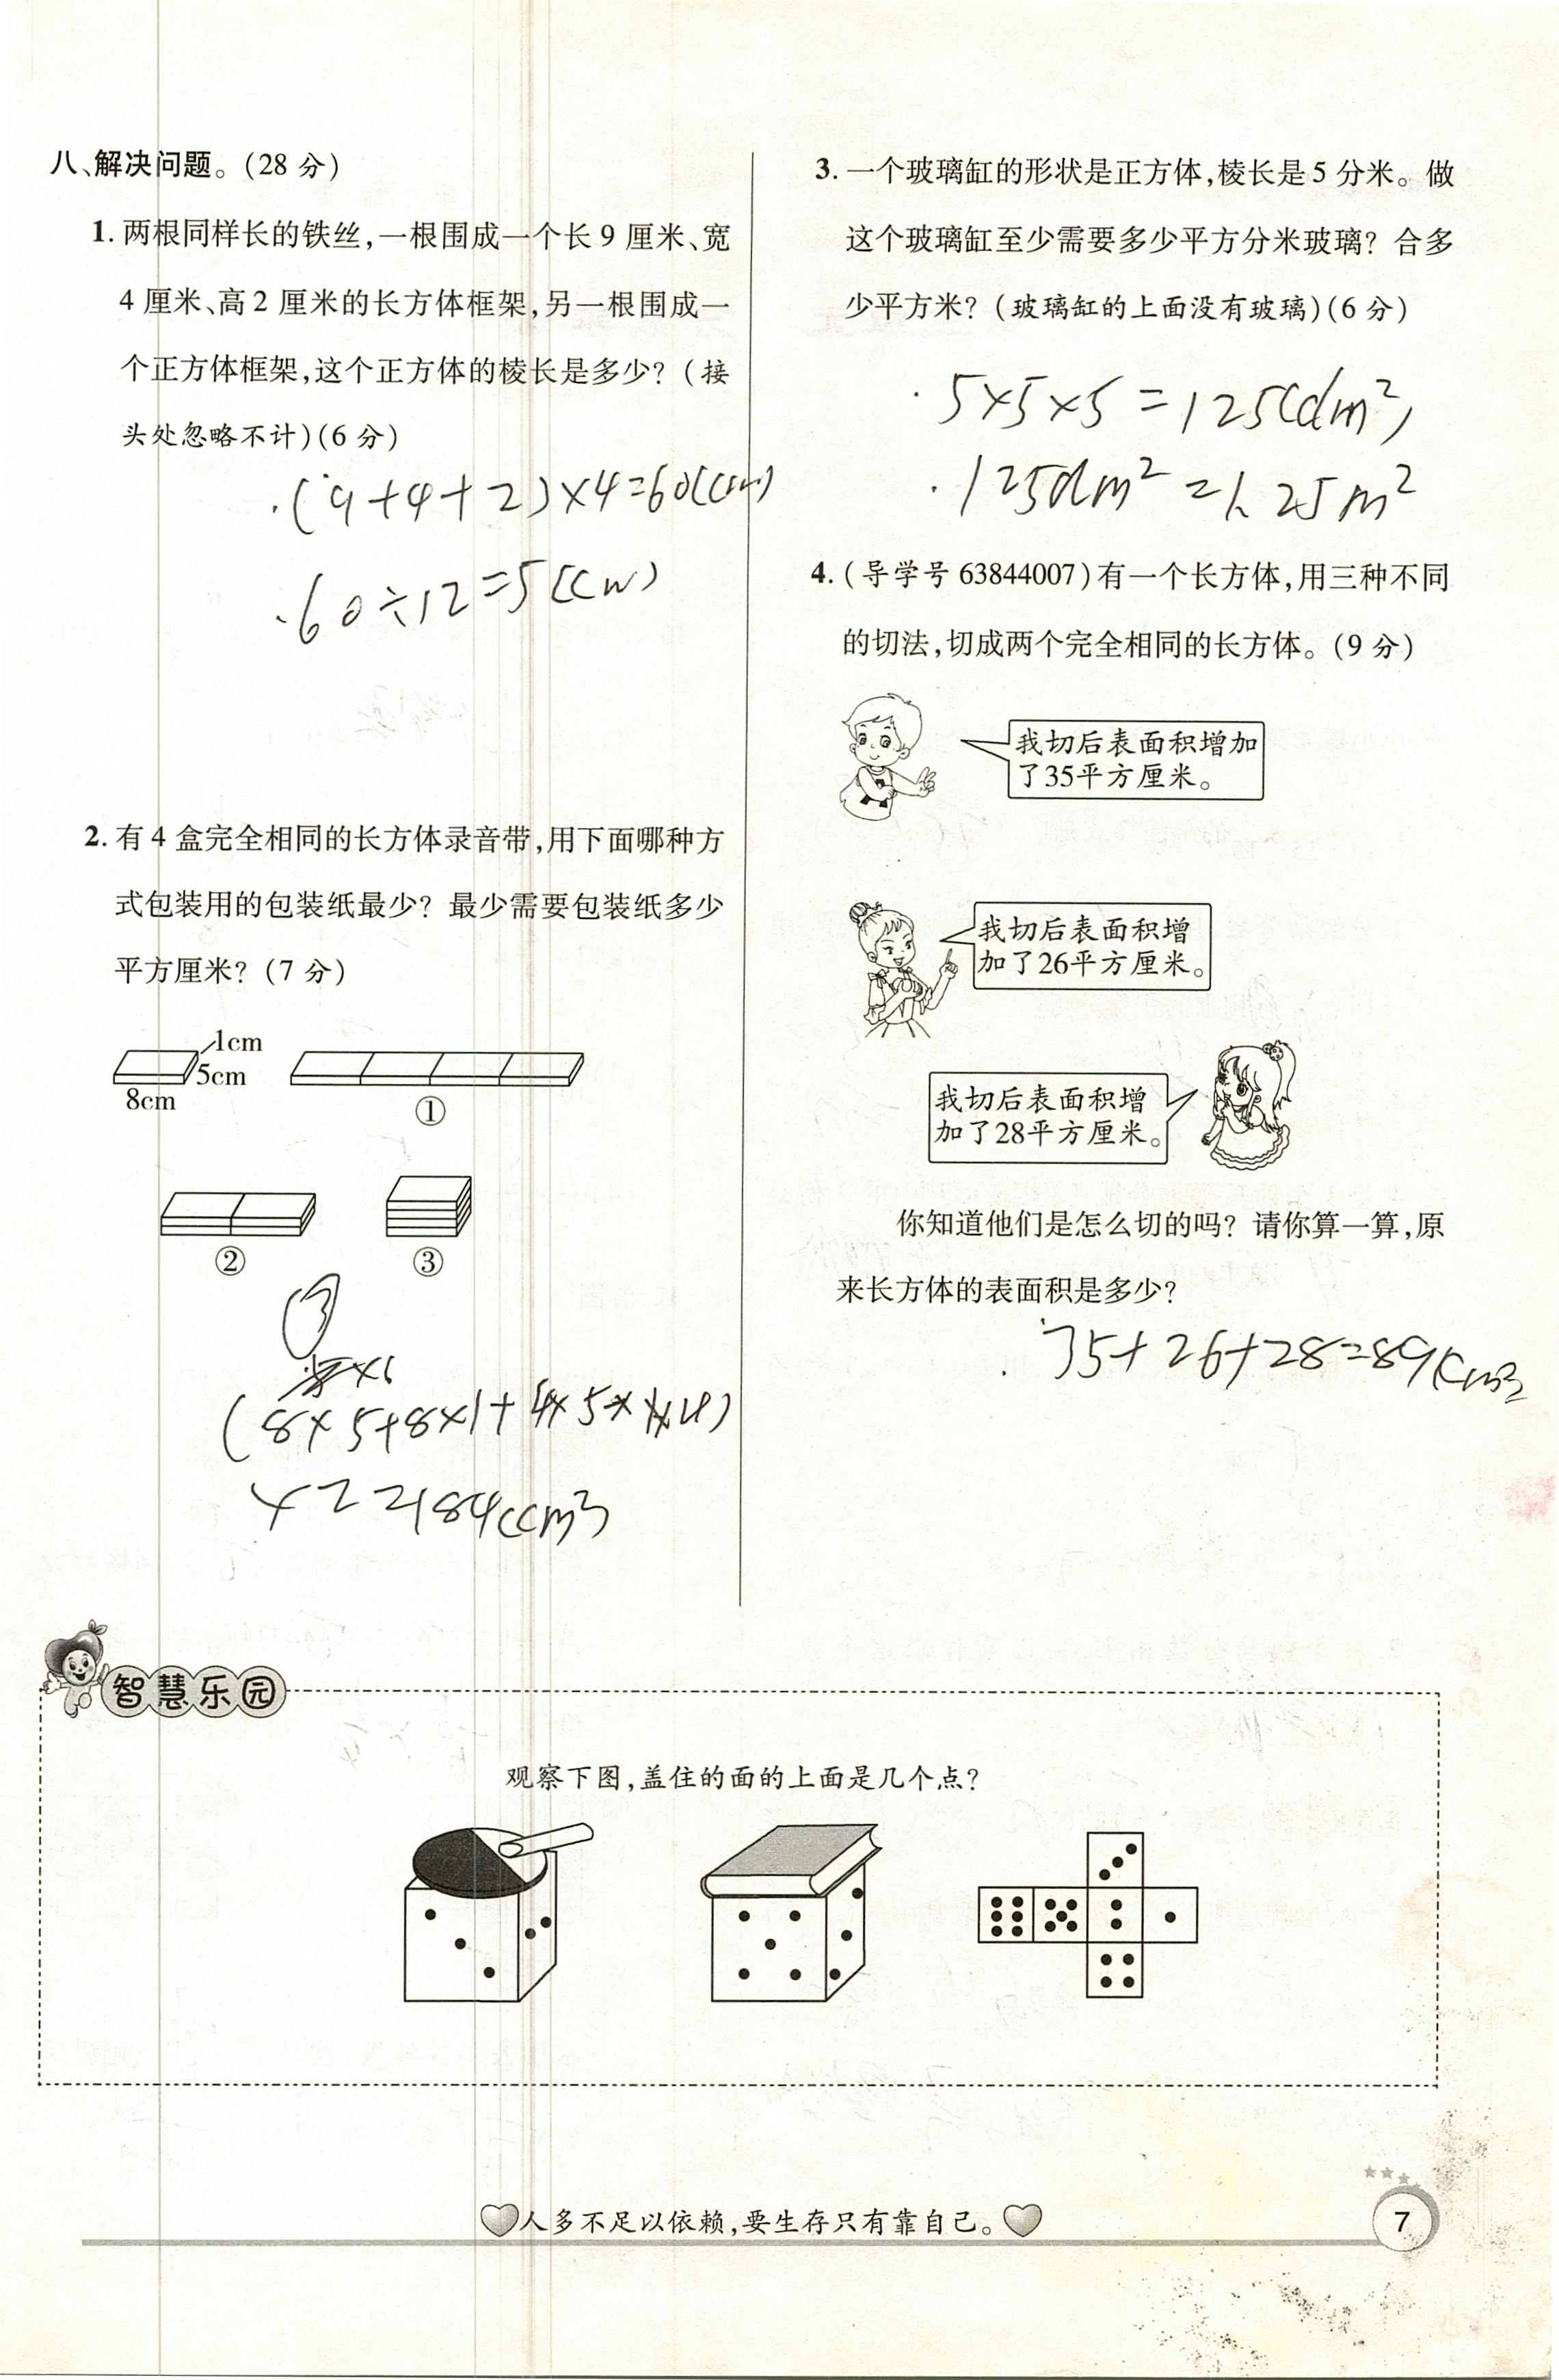 八、解决问题。(28 分)
1. 两根同样长的铁丝,一根围成一个长 9 厘米、宽
4 厘米、高 2 厘米的长方体框架,另一根围成一
个正方体框架,这个正方体的棱长是多少? (接
头处忽略不计)(6 分)
(9+4+2)×4=60(cm)
60÷12=5(cm)
2. 有 4 盒完全相同的长方体录音带,用下面哪种方
式包装用的包装纸最少? 最少需要包装纸多少
平方厘米? (7 分)
1cm
5cm
8cm
①
② ③
③
×2=184(cm²)
3. 一个玻璃缸的形状是正方体,棱长是 5 分米。做
这个玻璃缸至少需要多少平方分米玻璃? 合多
少平方米? (玻璃缸的上面没有玻璃)(6 分)
5×5×5=125(dm²)
125dm²=1.25m²
4. (导学号 63844007)有一个长方体,用三种不同
的切法,切成两个完全相同的长方体。(9 分)
我切后表面积增加
了35平方厘米。
我切后表面积增
加了26平方厘米。
我切后表面积增
加了28平方厘米。
你知道他们是怎么切的吗? 请你算一算,原
来长方体的表面积是多少?
35+26+28=89(cm²)
智慧乐园
观察下图,盖住的面的上面是几个点?
人多不足以依赖,要生存只有靠自己。
7